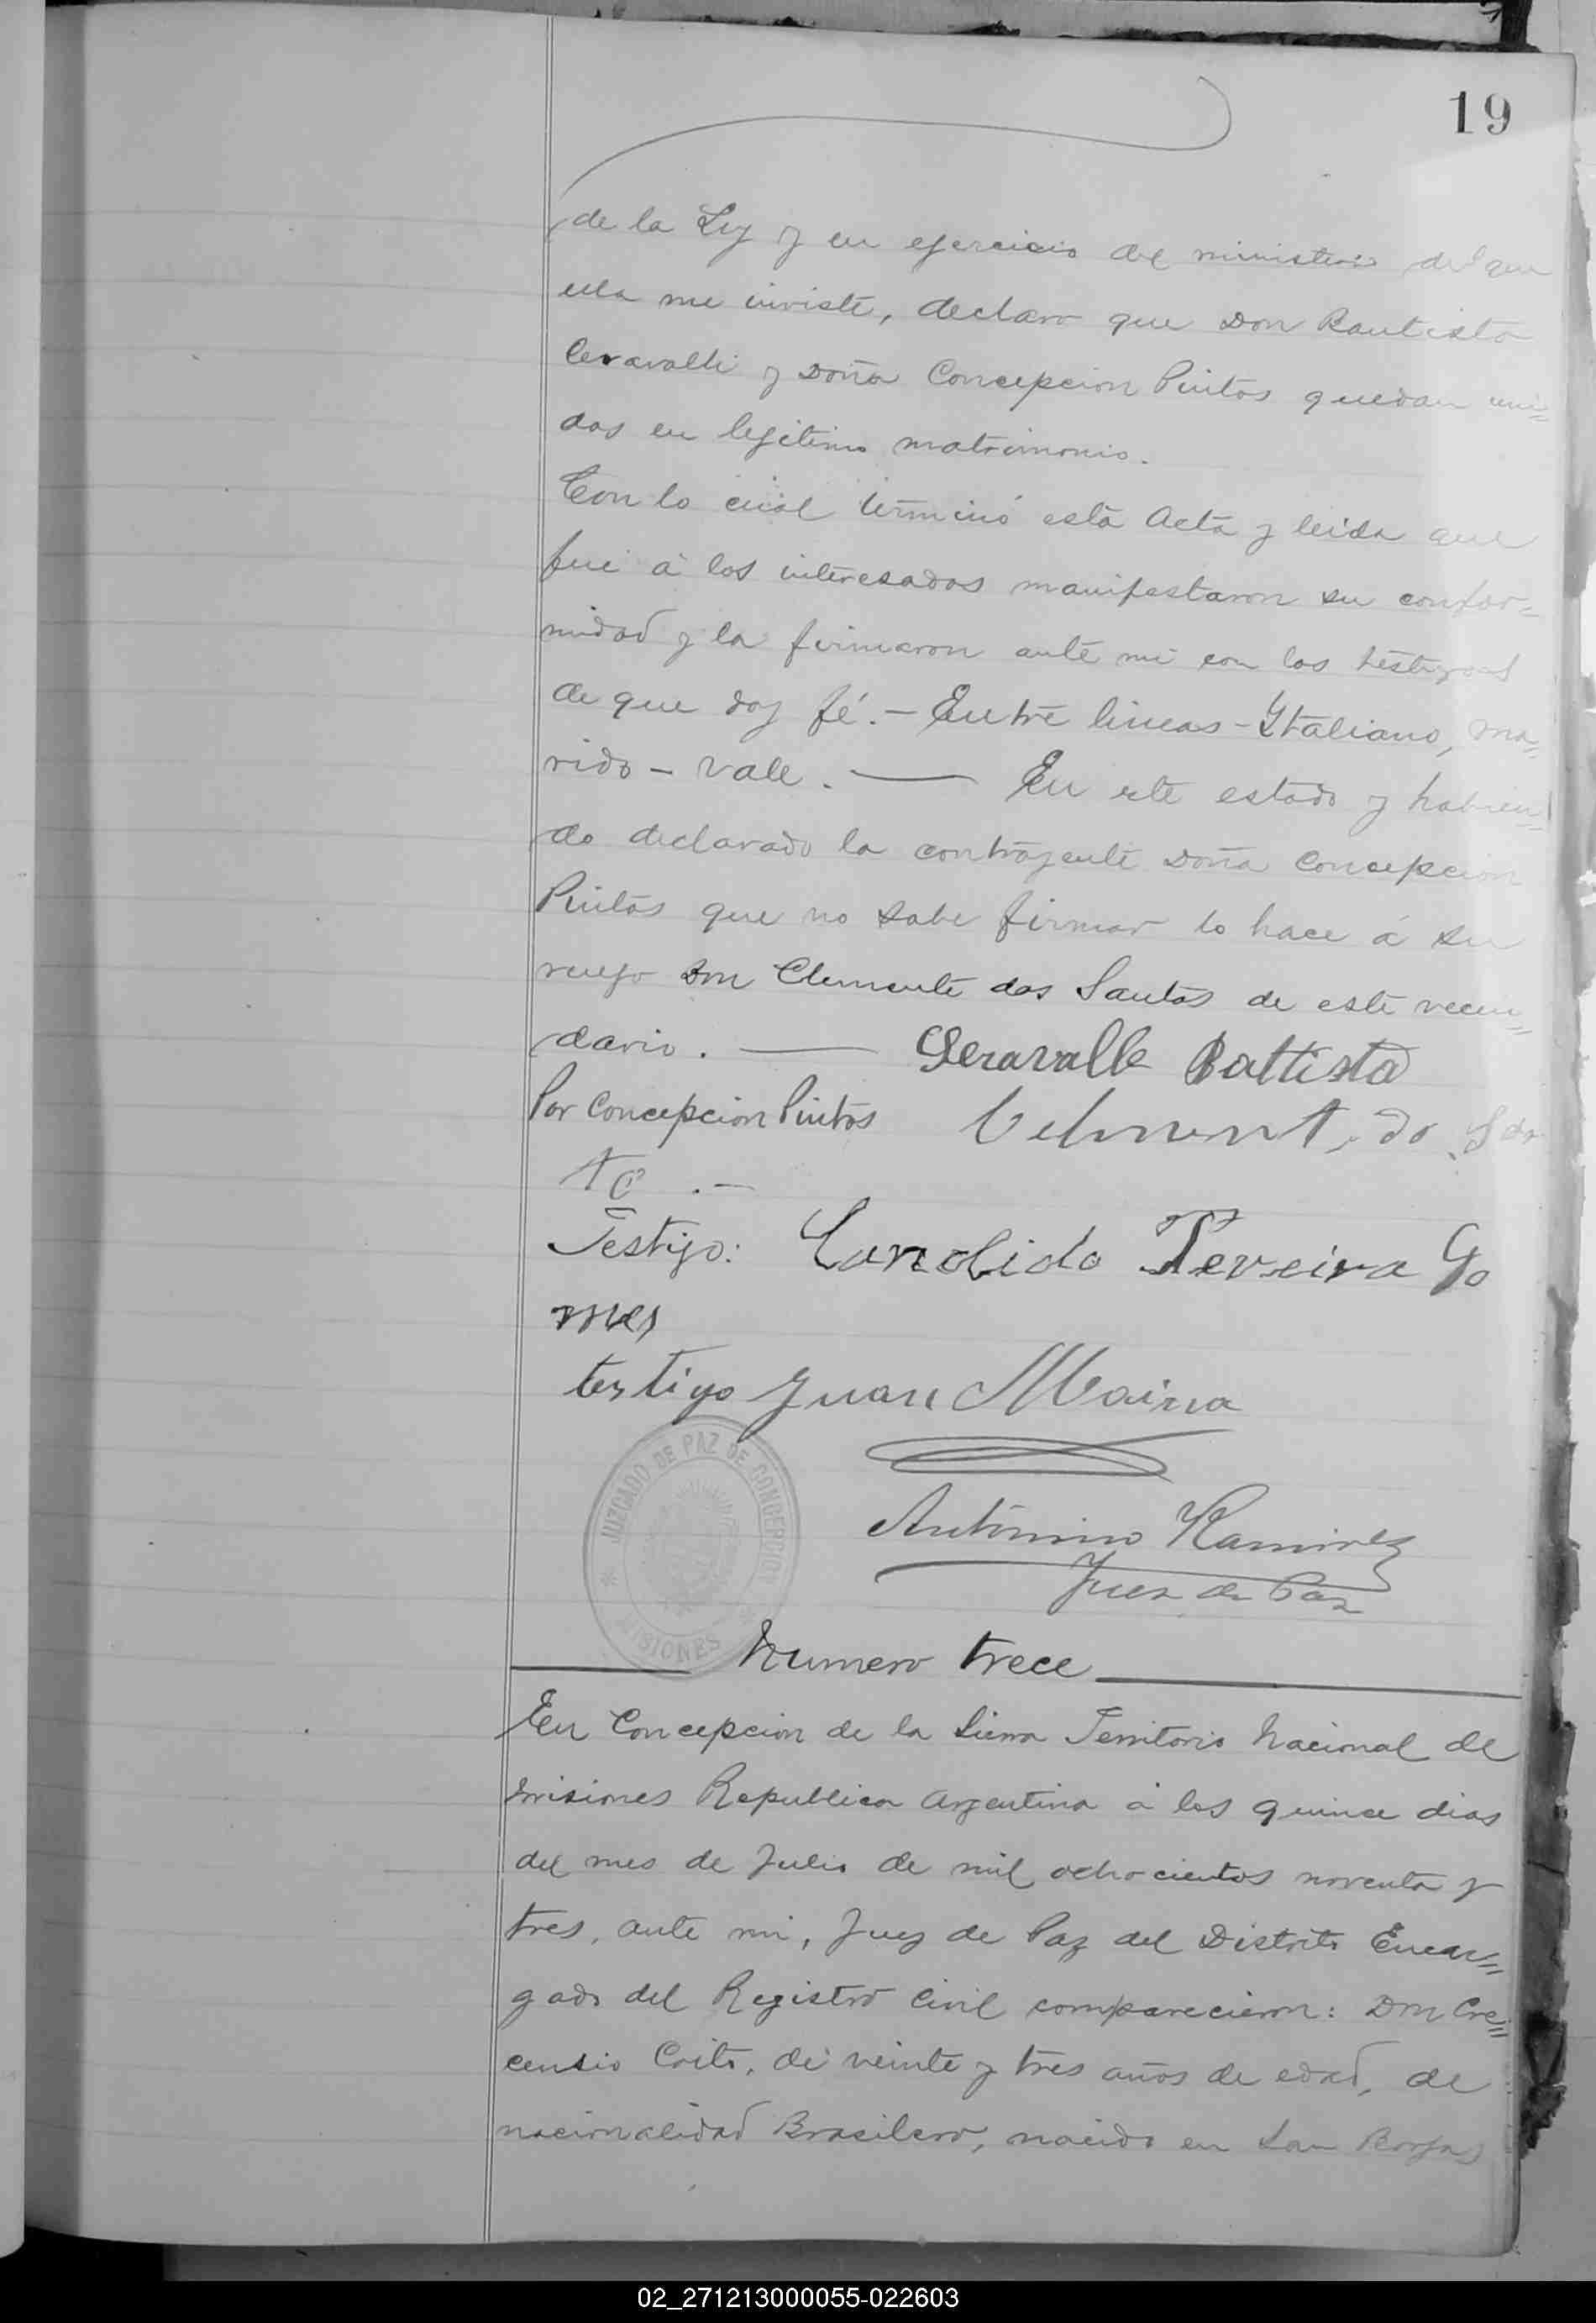 19
de la Ley y en ejercicio del ministerio del que
ella me inviste, declaro que Don Bautista
Ceravalli y Doña Concepcion Pintos quedan uni=
dos en legitimo matrimonio.
Con lo cual terminó esta Acta y leida que
fué á los interesados manifestaron su confor=
midad y la firmaron ante mi con los testigos
de que doy fé.- Entre lineas - Ytaliano, ma=
rido - vale. — En este estado y habien=
do declarado la contrayente Doña Concepcion
Pintos que no sabe firmar lo hace á su
ruego Don Clemente dos Santos de este vecin=
dario. — Ceravalle Battista
Por Concepcion Pintos
to .-
Testigo: Candido Pereira Go
mes
testigo Juan Maina
Antonino Ramirez
Juez de Paz
JUZGADO DE PAZ DE CONCEPCION
MISIONES
Numero trece
En Concepcion de la Sierra Territorio Nacional de
Misiones Republica Argentina á los quince dias
del mes de Julio de mil ochocientos noventa y
tres, ante mi, Juez de Paz del Distrito Encar=
gado del Registro Civil comparecieron: Don Cre=
censio Coito, de veinte y tres años de edad, de
nacionalidad Brasilero, nacido en San Borjas
02_271213000055-022603